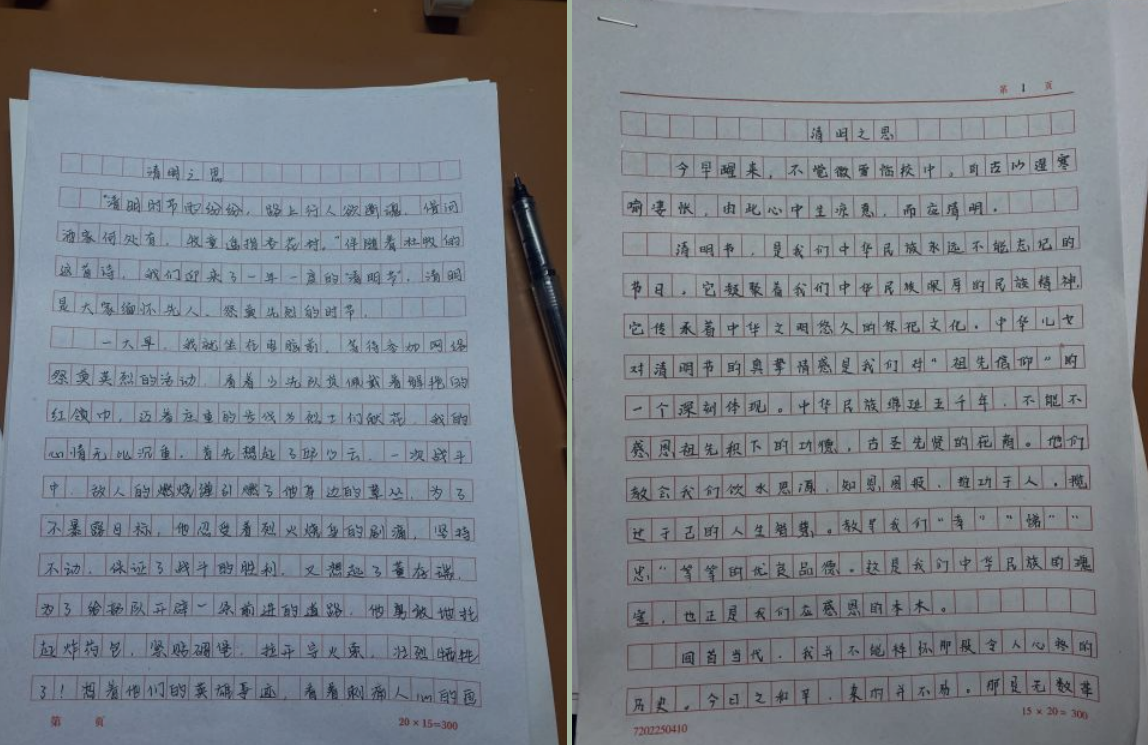 清明之思
"清明时节雨纷纷，路上行人欲断魂。借问
酒家何处有，牧童遥指杏花村。"伴随着杜牧的
这首诗，我们迎来了一年一度的"清明节"，清明
是大家缅怀先人、祭奠先烈的时节。
一大早，我就坐在电脑前，等待参加网络
祭奠英烈的活动，看着少先队员佩戴着鲜艳的
红领巾，迈着庄重的步伐为烈士们献花，我的
心情无比沉重。首先想起了邱少云，一次战斗
中，敌人的燃烧弹引燃了他身边的草丛，为了
不暴露目标，他忍受着烈火烧身的剧痛，坚持
不动，保证了战斗的胜利，又想起了董存瑞，
为了给部队开辟一条前进的道路，他勇敢地托
起炸药包，紧贴碉堡，拉开导火索，壮烈牺牲
了！想着他们的英雄事迹，看着刺痛人心的画
第 页
20×15=300
第 1 页
清明之思
今早醒来，不觉微雨临校中，自古以
，由此心中生凉意，而应清明。
清明节，是我们中华民族永远不能忘记的
节日。它凝聚着我们中华民族深厚的民族精神，
它传承着中华文明悠久的祭祀文化。中华儿女
对清明节的真挚情感是我们对"祖先信仰"的
一个深刻体现。中华民族绵延五千年，不能不
感恩祖先积下的功德，古圣先贤的花。他们
教会我们饮水思源，知恩图报，推功于人，揽
过于己的人生智慧。教导我们"孝""悌""
忠"等等的优良品德。这是我们中华民族的瑰
宝，也正是我们在感恩的本木。
回首当代，我并不能释怀那段令人心疼的
历史。今日之和平，来的并不易。那是无数革
7202250410
15×20=300